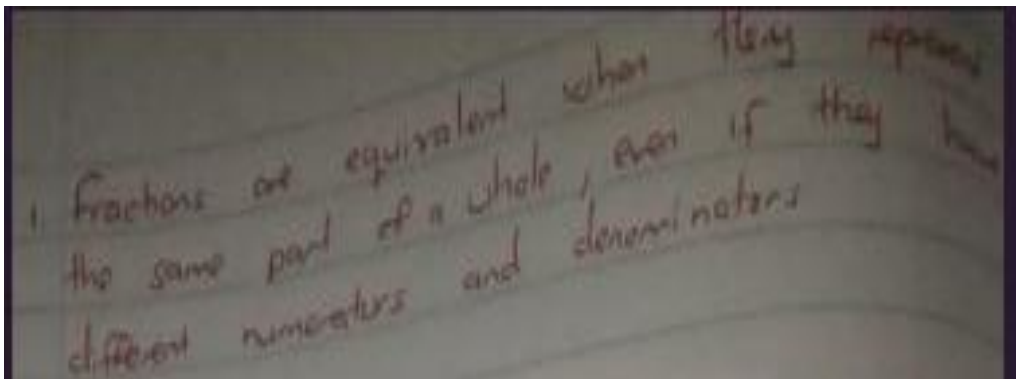 1. Fractions are equivalent when they represent
the same part of a whole, even if they have
different numerators and denominators